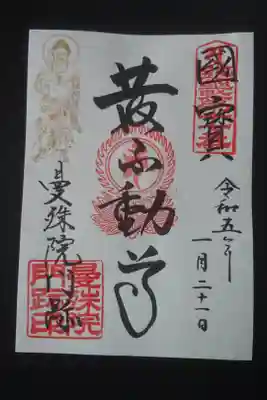 國寶
令和五年
一月二十一日
黄不動尊
曼殊院門跡
曼殊院
門跡印